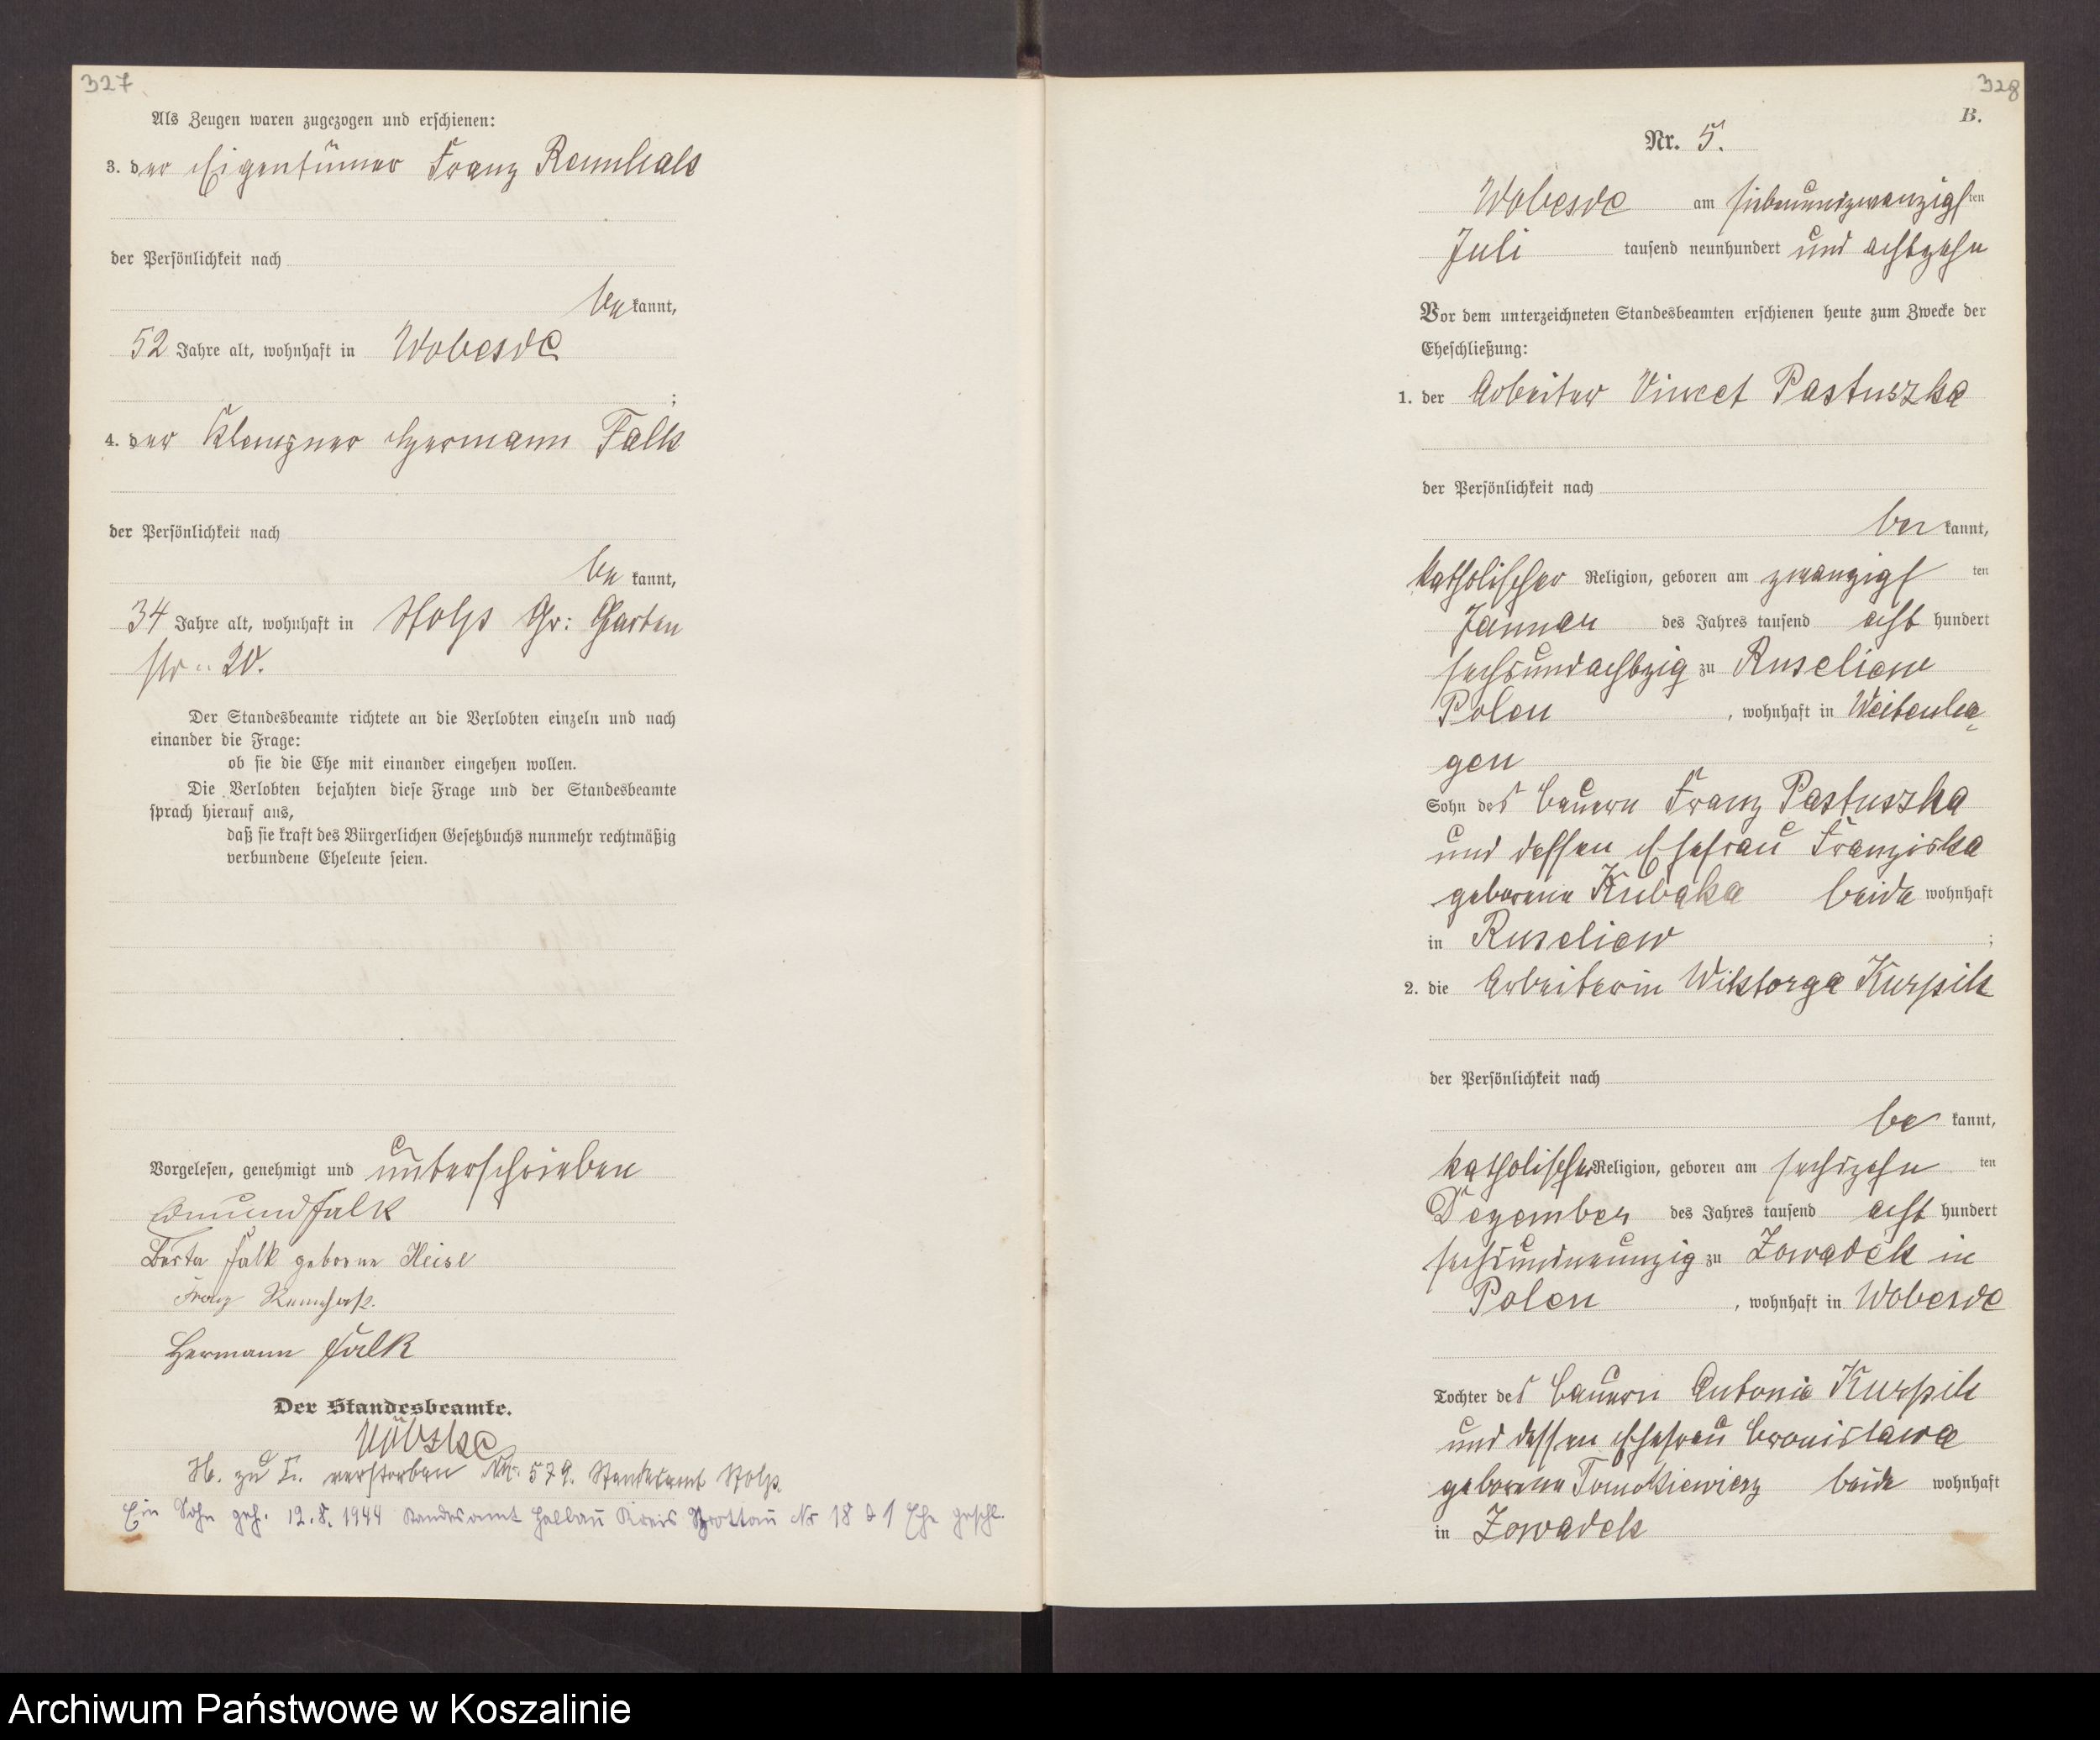 327
Als Zeugen waren zugezogen und erschienen:
3. der Eigentümer Franz Rennhals
der Persönlichkeit nach
be kannt,
52 Jahre alt, wohnhaft in Wobesde
;
4. der Klempner Hermann Falk
der Persönlichkeit nach
be kannt,
34 Jahre alt, wohnhaft in Stolp Gr: Garten
str.. 20.
Der Standesbeamte richtete an die Verlobten einzeln und nach
einander die Frage:
ob sie die Ehe mit einander eingehen wollen.
Die Verlobten bejahten diese Frage und der Standesbeamte
sprach hierauf aus,
daß sie kraft des Bürgerlichen Gesetzbuchs nunmehr rechtmäßig
verbundene Eheleute seien.
Vorgelesen, genehmigt und unterschrieben
Edmund Falk
Berta Falk geborne Heise
Franz
Hermann Falk
Der Standesbeamte.
H. zu T. verstorben Nr. 579. Standesamt Stolp.
Ein Sohn geh. 12.8.1944 Standesamt Halbau Kreis Sprottau Nr 18 1 Ehe geschl.
328
B.
Nr. 5.
Wobesde am siebenundzwanzigs ten
Juli tausend neunhundert und achtzehn
Vor dem unterzeichneten Standesbeamten erschienen heute zum Zwecke der
Eheschließung:
1. der Arbeiter Vincet Pastuszka
der Persönlichkeit nach
be kannt,
katholischer Religion, geboren am zwanzigs ten
Januar des Jahres tausend acht hundert
sechsundachtzig zu Ruscliew
Polen , wohnhaft in Weitenha-
gen
Sohn des Bauern Franz Pastuszka
und dessen Ehefrau Franziska
geborene Kubaka beide wohnhaft
in Ruscliew ;
2. die Arbeiterin Wiktorga Kurpik
der Persönlichkeit nach
be kannt,
katholischer Religion, geboren am sechszehn ten
Dezember des Jahres tausend acht hundert
sechsundneunzig zu Zowadek in
Polen , wohnhaft in Wobesde
Tochter des Bauern Antonie Kurpik
und dessen Ehefrau Bronislawa
geborene Tomokiewicz beide wohnhaft
in Zowadek
Archiwum Państwowe w Koszalinie